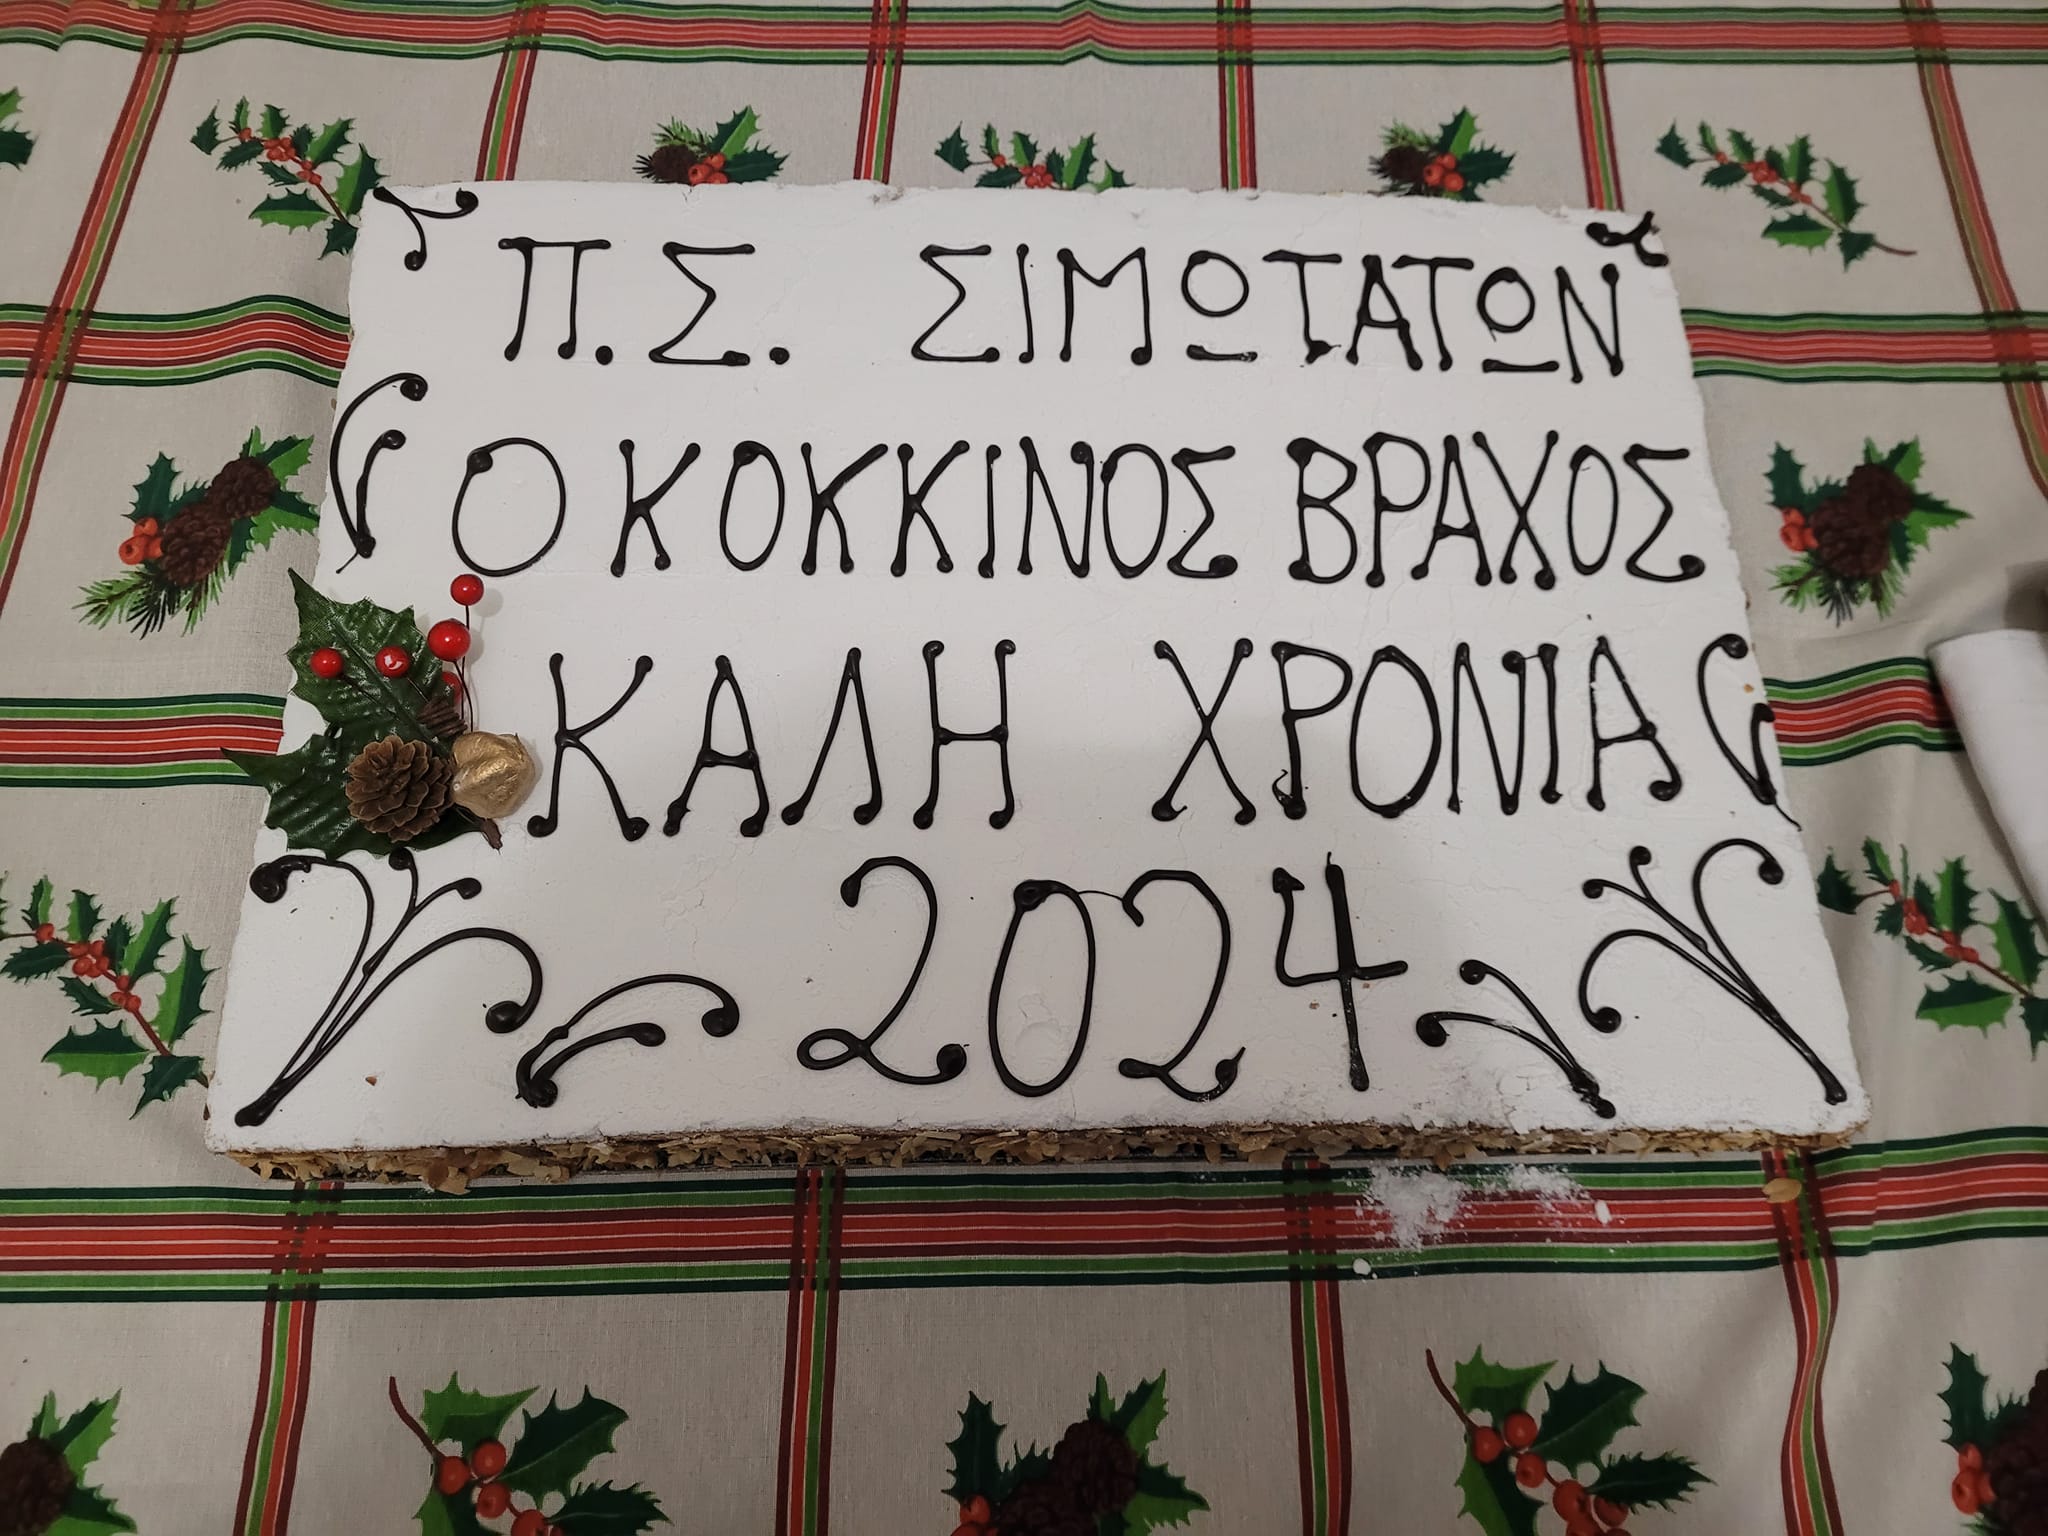 Π.Σ. ΣΙΜΩΤΑΤΩΝ
Ο ΚΟΚΚΙΝΟΣ ΒΡΑΧΟΣ
ΚΑΛΗ ΧΡΟΝΙΑ
2024